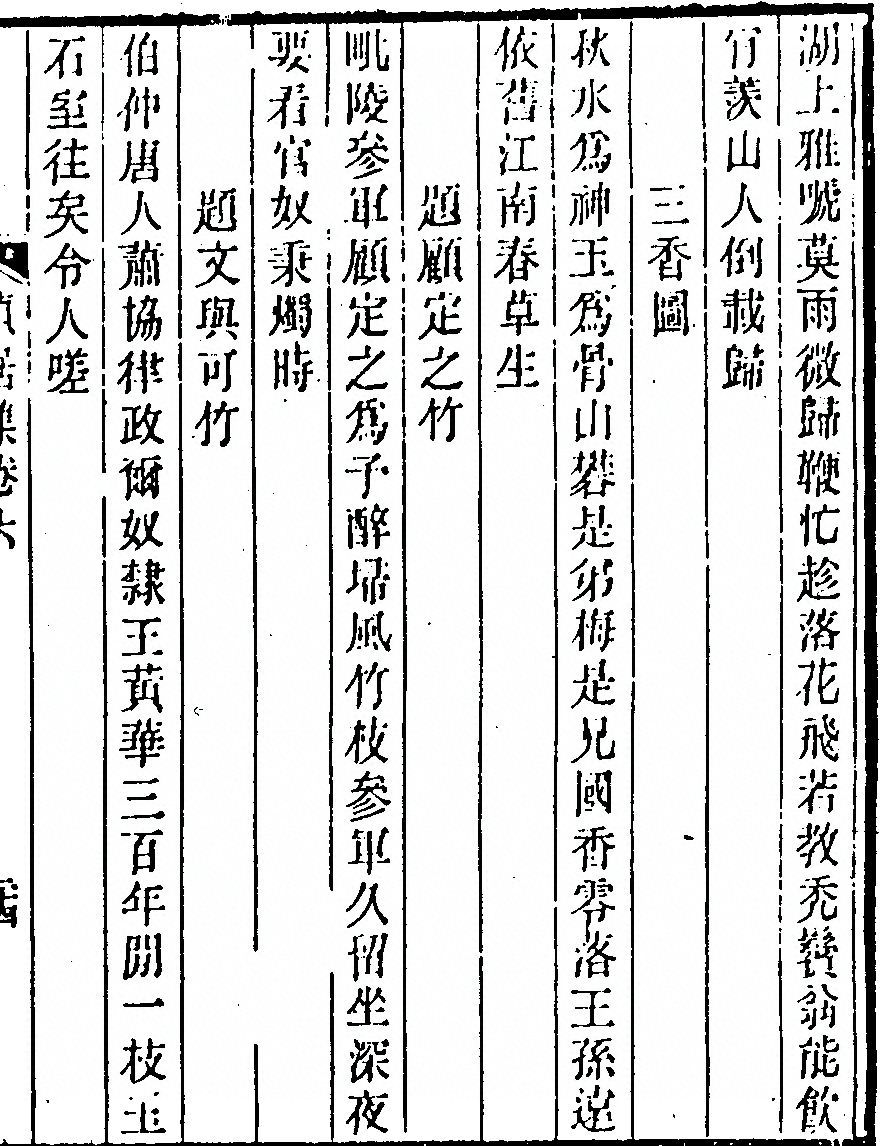 湖上雅號莫雨微歸鞭忙趁落花飛若教禿鬢翁能飲
肯羨山人倒載歸
三香圖
秋水爲神玉爲骨山礬是弟梅是兄國香零落王孫遠
依舊江南春草生
題顧定之竹
毗陵參軍顧定之爲予醉埽風竹枝參軍久留坐深夜
要看官奴秉燭時
題文與可竹
伯仲唐人蕭協律政爾奴隸王黃華三百年閒一枝玉
石室往矣令人嗟
貞居集卷六